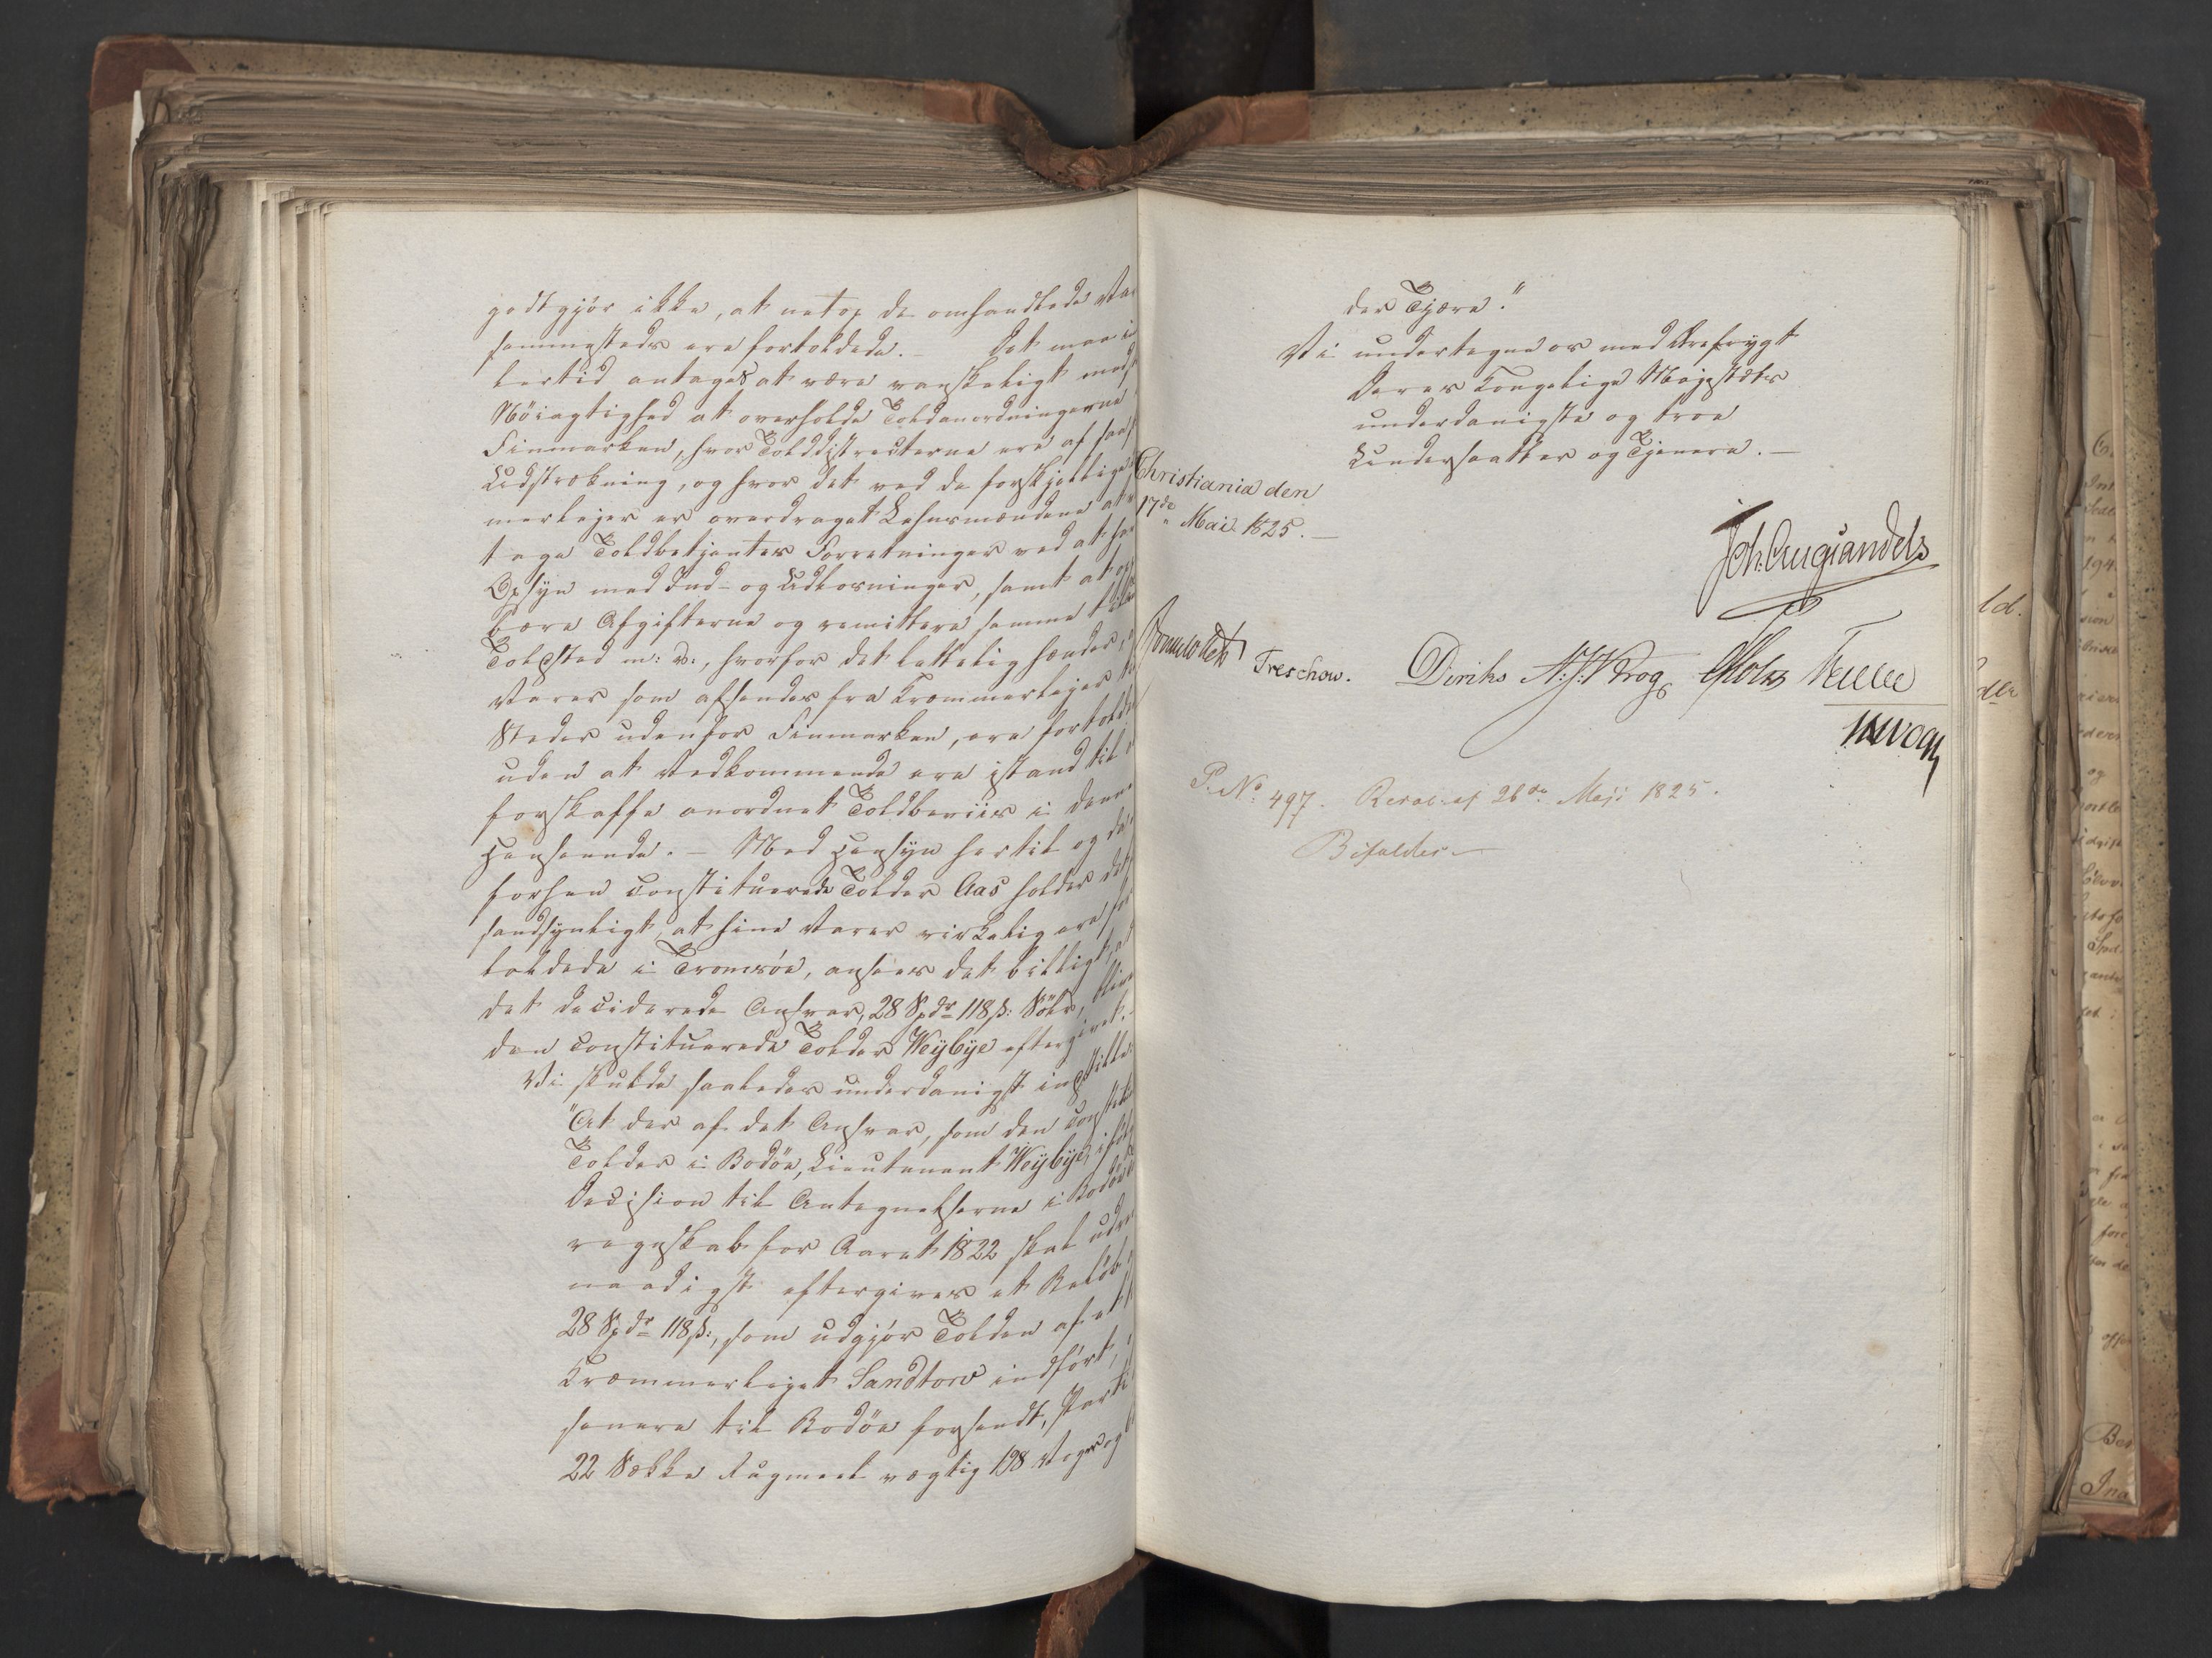 godtgjør ikke, at netop de omhandlede Va
sammesteds ere fortoldede. – Det maa i
lertid antages at være vanskeligt med
Nöiagtighed at overholde Toldanordningerne
Finmarken, hvor Tolddistricterne ere af saa
Udstrækning, og hvor det ved de forskjellige
merleyer er overdraget Lehnsmændene at
tage Toldbetjentes Forretninger ved at ha
Opsyn med Ind- og Udlosninger, samt at op
bære Afgifterne og remittere samme til
Toldsted m: v:, hvorfor det lettelig hænder,
Varer som afsendes fra Kræmmerleyer til
Steder udenfor Finmarken, ere fortolde
uden at Vedkommende ere istand til
forskaffe anordnet Toldbeviis i denne
Henseende. – Med Hensyn hertil og da
forhen constituerede Tolder Aas holder det
sandsynligt, at hine Varer virkelig ere for
toldede i Tromsöe, ansees det billigt, at
det deciderede Ansvar, 28 Spdr 118 ß: Sölv, blive
den constituerede Tolder Weybye eftergivet. –
Vi skulde saaledes underdanigst indstille:
"At der af det Ansvar, som den constitu
Tolder i Bodöe, Lieutenant Weybye, ifölg
Decision til Antegnelserne i Bodöe
regnskab for Aaret 1822 skal udre
naadigst eftergives et Belöb
28 Spdr 118 ß:, som udgjör Tolden af et
Kræmmerleyet Sandtorv indfört,
senere til Bodöe forsendt, Parti
22 Sække Rugmeel vægtig 198 Voger og
der Tjære."
Vi undertegne os med Ærefrygt
Deres Kongelige Majestæts
underdanigste og troe
Undersaatter og Tjenere. –
Christiania den
17de Mai 1825. –
Joh. Aug Sandels
Sommerhielm Treschow. Diriks A: J: Krog Holst Fasting
P. No 497. Resol: af 26de Maji 1825.
Bifaldes –